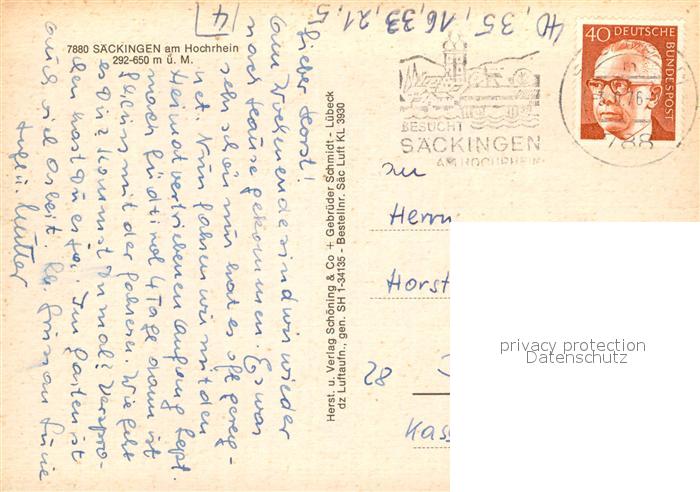 7880 SÄCKINGEN am Hochrhein
292-650 m ü. M.
4
40, 35, 16, 33, 21, 5
Lieber Horst!
Am Wochenende sind wir wieder
nach Hause gekommen. Es war
sehr schön nur hat es oft gereg-
net. Nun fahren wir mit den
Heimatvertriebenen Anfang Sept.
nach Südtirol 4 Tage dann ist
mit der fahrerei. Wie geht
es Dir? Kommst Du mal? Verspro-
chen hast du es ja. Im Garten ist
auch viel Arbeit. Grüsse an
Mutter
Herst. u. Verlag Schöning & Co + Gebrüder Schmidt - Lübeck
dz Luftaufn., gen. SH 1-34135 - Bestellnr. Säc Luft KL 3930
BESUCHT
SÄCKINGEN
AM HOCHRHEIN
40 DEUTSCHE
BUNDESPOST
76
788
An
Herrn
Horst
82
Kass
privacy protection
Datenschutz